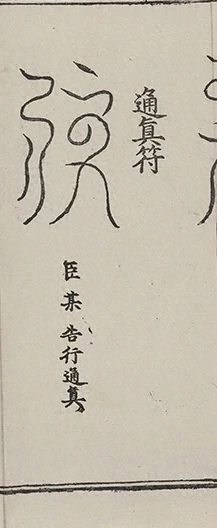 通真符
臣某告行通真